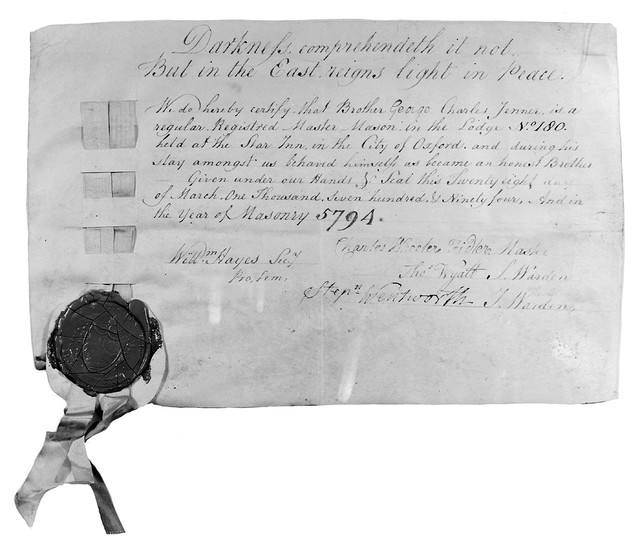 Darkneſs comprehendeth it not.
But in the East reigns light in Peace.
We do hereby certify that Brother George Charles Jenner, is a
regular Registred Master Mason in the Lodge No. 180.
held at the Star Inn, in the City of Oxford, and during his
stay amongst us behaved himself as became an honest Brother
Given under our Hands & Seal this Twenty eight day
of March, One Thousand, Seven hundred, & Ninety four, And in
the Year of Masonry 5794.
Willm. Hayes Secy
Pro. Tem.
Charles Wheeler Master
Thos. Wyatt S. Warden
Stepn. Wentworth J. Warden,